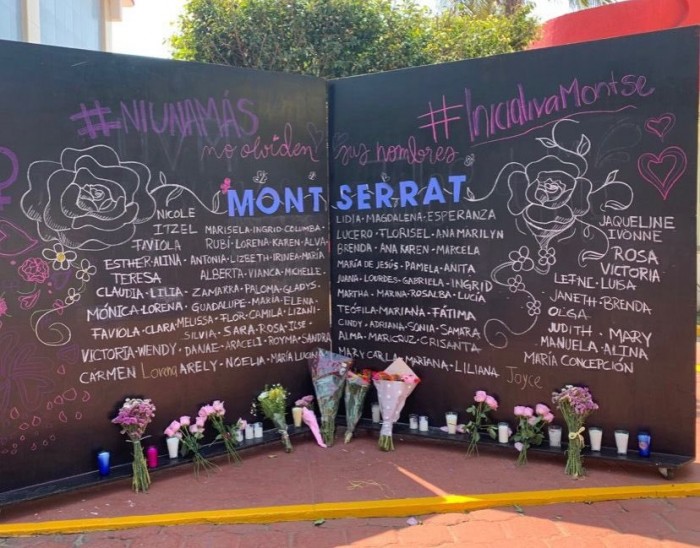 #NIUNAMÁS
#IniciativaMontse
no olviden sus nombres
MONTSERRAT
NICOLE
ITZEL MARISELA·INGRID·COLUMBA
FAVIOLA RUBÍ·LORENA·KAREN·ALVA
ESTHER·ALINA·ANTONIA·LIZBETH·IRINEA·MARÍA
TERESA ALBERTA·VIANCA·MICHELLE
CLAUDIA·LILIA·ZAMARRA·PALOMA·GLADYS
MÓNICA·LORENA·GUADALUPE·MARÍA·ELENA
FAVIOLA·CLARA·MELISSA·FLOR·CAMILA·LIZANI
SILVIA·SARA·ROSA·ILSE
VICTORIA·WENDY·DANAE·ARACELI·ROYMA·SANDRA
CARMEN Lorena ARELY·NOELIA·MARÍA
LIDIA·MAGDALENA·ESPERANZA
LUCERO·FLORISEL·ANA MARILYN
BRENDA·ANA KAREN·MARCELA
MARÍA DE JESÚS·PAMELA·ANITA
JUANA·LOURDES·GABRIELA·INGRID
MARTHA·MARINA·ROSALBA·LUCÍA
TEÓFILA·MARIANA·FÁTIMA
CINDY·ADRIANA·SONIA·SAMARA
ALMA·MARICRUZ·CRISANTA
MARY CARLA MARIANA·LILIANA Joyce
JAQUELINE
IVONNE
ROSA
VICTORIA
LUISA
JANETH·BRENDA
OLGA
JUDITH·MARY
MANUELA·ALINA
MARÍA CONCEPCIÓN